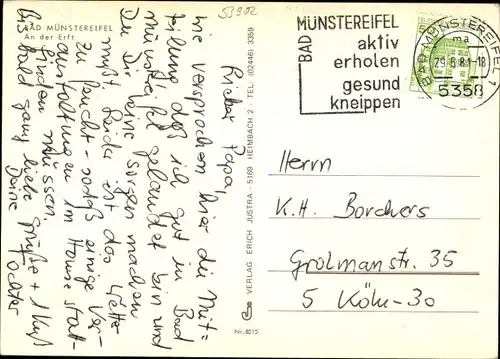 53902
BAD MÜNSTEREIFEL
An der Erft
Lieber Papa,
wie versprochen hier die Mit=
teilung daß ich gut in Bad
Münstereifel gelandet bin und
Du Dir keine Sorgen machen
mußt. Leider ist das Wetter
zu feucht - sodaß einige Ver-
anstaltungen im Hause statt-
finden müssen.
Bis bald ganz liebe Grüße + 1 Kuß
Deine Tochter
VERLAG ERICH JUSTRA · 5169 HEIMBACH 2 TEL. (02446) 3359
Nr. 8515
BAD MÜNSTEREIFEL
aktiv
erholen
gesund
kneippen
BAD MÜNSTEREIFEL 1
ma
29.6.81-18
5358
Herrn
K.H. Borchers
Grolmanstr. 35
5 Köln-30